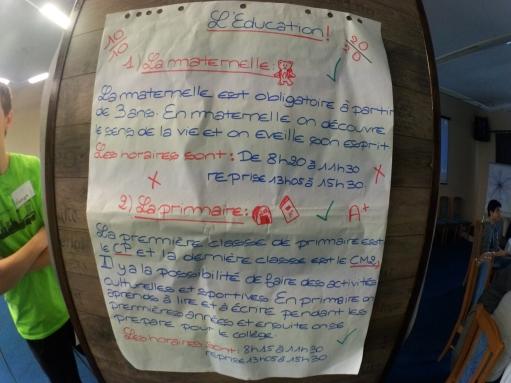 L'Education!
10/10
20/20
1) La maternelle:
La maternelle est obligatoire à partir
de 3 ans. En maternelle on découvre
le sens de la vie et on eveille son esprit.
Les horaires sont: De 8h20 à 11h30
reprise 13h05 à 15h30
2) La primaire:
A+
La première classe de primaire est
le CP et la dernière classe est le CM2,
Il y a la possibilité de faire des activités
culturelles et sportives. En primaire on
aprends à lire et à écrire pendant les
premmières années et ensuite on se
prépare pour le collège.
Les horaires sont: 8h15 à 11h30
reprise 13h05 à 15h30